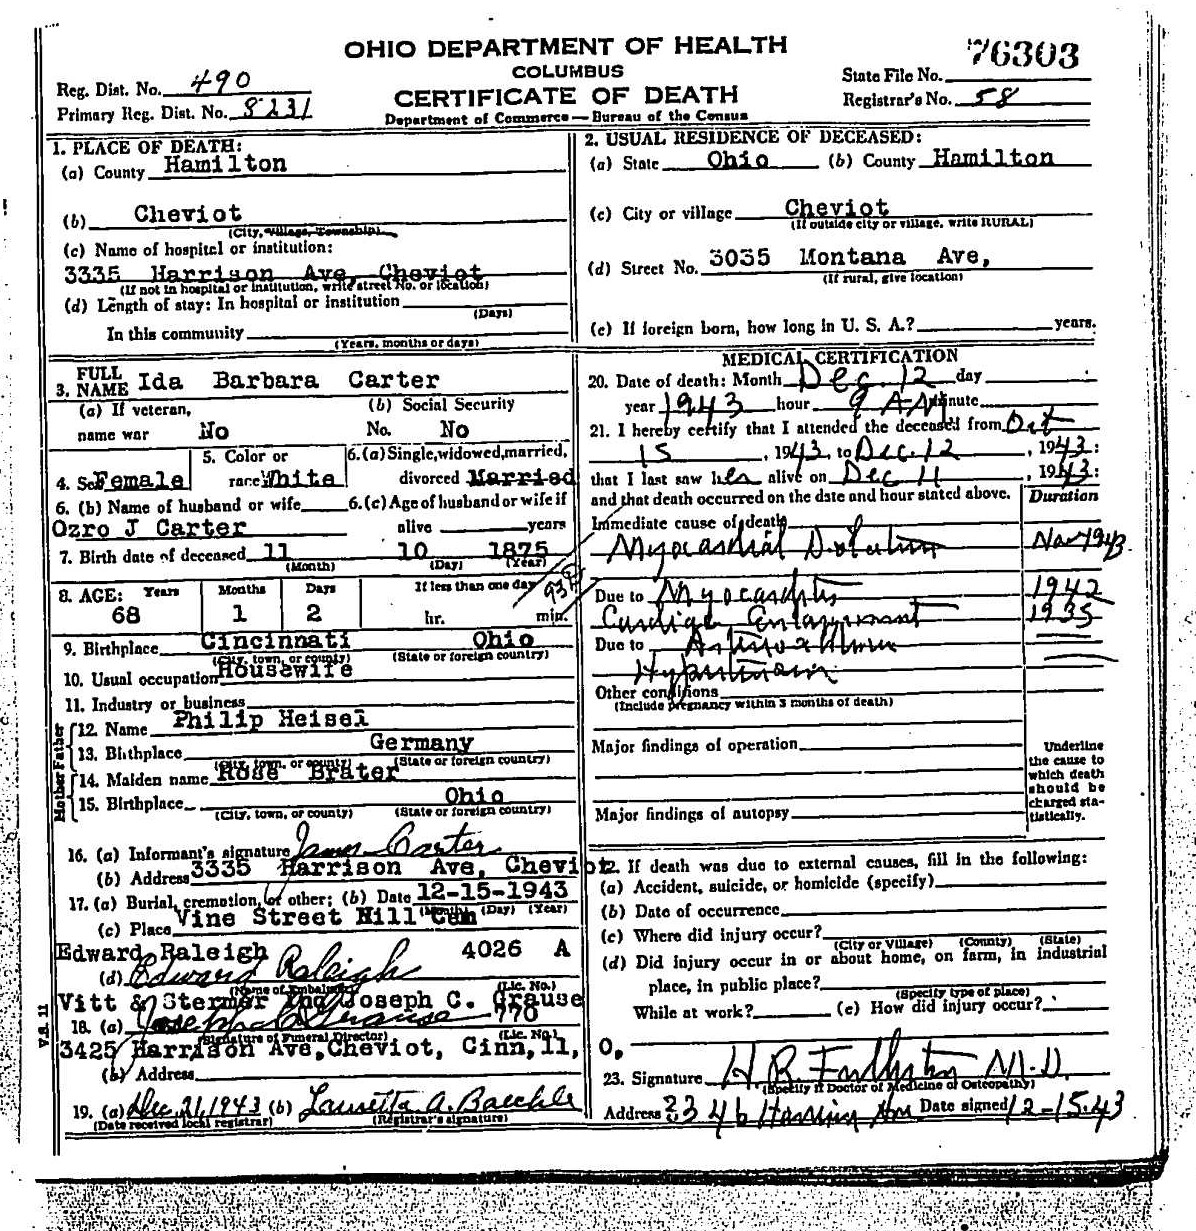 OHIO DEPARTMENT OF HEALTH
COLUMBUS
CERTIFICATE OF DEATH
Department of Commerce — Bureau of the Census
76303
State File No.
Registrar's No. 58
Reg. Dist. No. 490
Primary Reg. Dist. No. 8231
1. PLACE OF DEATH:
(a) County Hamilton
(b) Cheviot
(City, Village, Township)
(c) Name of hospital or institution:
3335 Harrison Ave, Cheviot
(If not in hospital or institution, write street No. or location)
(d) Length of stay: In hospital or institution
(Days)
In this community
(Years, months or days)
2. USUAL RESIDENCE OF DECEASED:
(a) State Ohio (b) County Hamilton
(c) City or village Cheviot
(If outside city or village, write RURAL)
(d) Street No. 3035 Montana Ave,
(If rural, give location)
(e) If foreign born, how long in U. S. A.? years.
3. FULL NAME Ida Barbara Carter
(a) If veteran, name war No
(b) Social Security No. No
4. Sex Female
5. Color or race White
6. (a) Single, widowed, married, divorced Married
6. (b) Name of husband or wife
Ozro J Carter
6. (c) Age of husband or wife if alive years
7. Birth date of deceased 11 10 1875
(Month) (Day) (Year)
8. AGE: Years Months Days If less than one day
68 1 2 hr. min.
9. Birthplace Cincinnati Ohio
(City, town, or county) (State or foreign country)
10. Usual occupation Housewife
11. Industry or business
Father
12. Name Philip Heisel
13. Birthplace Germany
(City, town, or county) (State or foreign country)
Mother
14. Maiden name Rose Brater
15. Birthplace Ohio
(City, town, or county) (State or foreign country)
16. (a) Informant's signature James Carter
(b) Address 3335 Harrison Ave, Cheviot
17. (a) Burial, cremation, or other; (b) Date 12-15-1943
(Month) (Day) (Year)
(c) Place Vine Street Hill Cem
Edward Raleigh 4026 A
(d) Edward Raleigh
(Name of Embalmer) (Lic. No.)
Vitt & Stermer Inc Joseph C. Grause
18. (a) Joseph C. Grause 770
(Signature of Funeral Director) (Lic. No.)
3425 Harrison Ave, Cheviot, Cinn, 11, O,
(b) Address
19. (a) Dec, 21, 1943 (b) Lauretta A. Baechle
(Date received local registrar) (Registrar's signature)
V.S. 11
MEDICAL CERTIFICATION
20. Date of death: Month Dec. 12 day
year 1943 hour 9 AM minute
21. I hereby certify that I attended the deceased from Oct
15, 1943, to Dec. 12, 1943:
that I last saw her alive on Dec 11, 1943:
and that death occurred on the date and hour stated above. Duration
Immediate cause of death
Myocardial Dilatation Nov 1943
Due to Myocarditis 1942
Cardiac Enlargement 1935
Due to
Hypertension
Other conditions
(Include pregnancy within 3 months of death)
Major findings of operation
Major findings of autopsy
Underline the cause to which death should be charged statistically.
22. If death was due to external causes, fill in the following:
(a) Accident, suicide, or homicide (specify)
(b) Date of occurrence
(c) Where did injury occur?
(City or Village) (County) (State)
(d) Did injury occur in or about home, on farm, in industrial
place, in public place?
(Specify type of place)
While at work? (e) How did injury occur?
23. Signature H R M.D.
(Specify if Doctor of Medicine or Osteopathy)
Address 3346 Harrison Ave Date signed 12-15-43